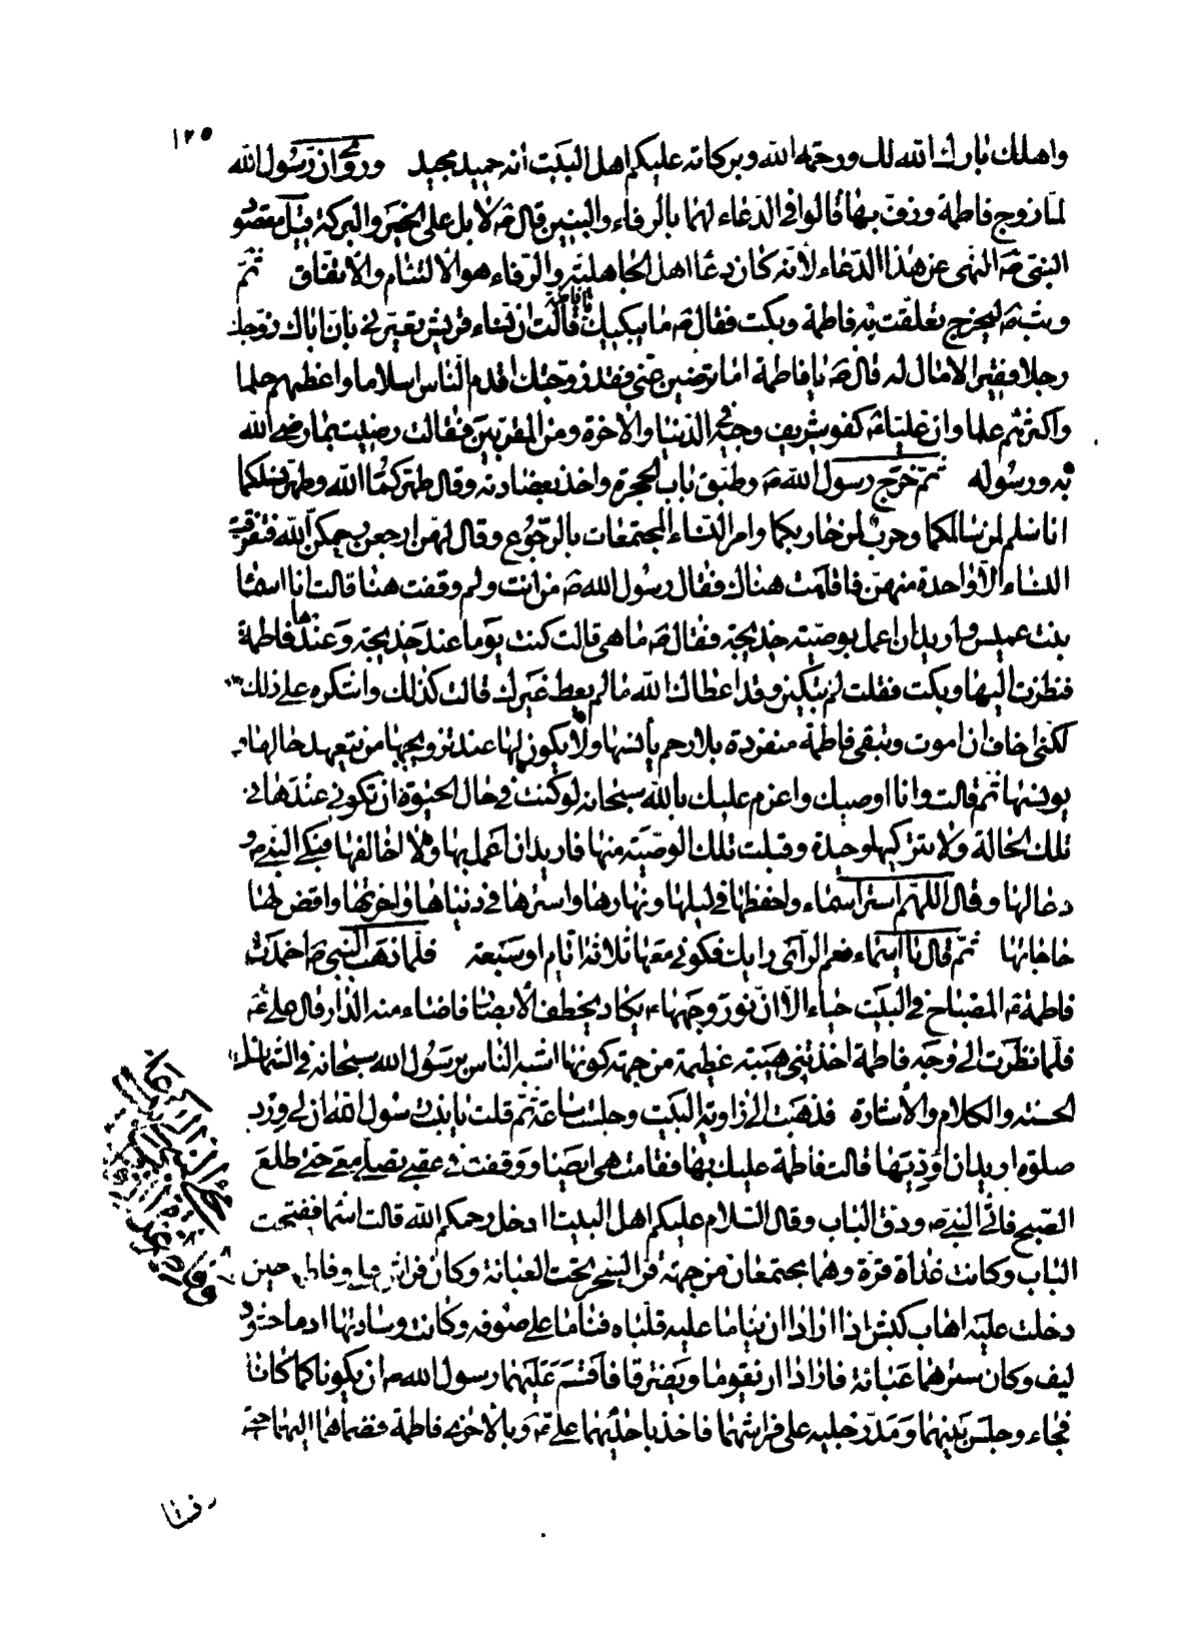 ١٢٥
واهلك بارك الله لك ورحمة الله وبركاته عليكم اهل البيت انه حميد مجيد وروى ان رسول الله
لما زوج فاطمة وزف بها قالوا في الدعاء لهما بالرفاء والبنين قال ص لا بل على الخير والبركة قيل مقصود
النبي ص النهى عن هذا الدعاء لانه كان دعا اهل الجاهلية والرفاء هو الالتئام والاتفاق ثم
وثب ص ليخرج تعلقت به فاطمة وبكت فقال ص ما يبكيك يا فاطمة قالت ان نساء قريش تعيرني بان اباك زوجك
رجلا فقيرا لا مال له قال ص يا فاطمة اما ترضين عني فقد زوجتك اقدم الناس اسلاما واعظمهم حلما
واكثرهم علما وان عليا ع كفو شريف وجيه في الدنيا والاخرة ومن المقربين فقالت رضيت بما رضي الله
به ورسوله ثم خرج رسول الله ص وطبق باب الحجرة واخذ بعضادته وقال طهركما الله وطهر نسلكما
انا سلم لمن سالمكما وحرب لمن حاربكما وامر النساء المجتمعات بالرجوع وقال لهن ارجعن رحمكن الله فتفرقت
النساء الا واحدة منهن فاقامت هناك فقال رسول الله ص من انت ولم وقفت هنا قالت انا اسماء
بنت عميس واريد ان اعمل بوصية خديجة فقال ص ما هي قالت كنت يوما عند خديجة وعندها فاطمة
فنظرت اليها وبكت فقلت لم تبكين وقد اعطاك الله ما لم يعط غيرك قالت كذلك واشكره على ذلك
لكني اخاف ان اموت وتبقى فاطمة منفردة بلا رحم يأنسها ولا يكون لها عند تزويجها من يتعهد حالها و
يونسها ثم قالت وانا اوصيك واعزم عليك بالله سبحانه لو كنت في حال الحيوة ان تكوني عندها في
تلك الحالة ولا تتركيها وحيدة وقبلت تلك الوصية منها فاريد ان اعمل بها ولا اخالفها فبكى النبي ص و
دعا لها وقال اللهم استر اسماء واحفظها في ليلها ونهارها واسترها في دنياها واخرتها واقض لها
حاجاتها ثم قال يا اسماء نعم الرأي رايك فكوني معها ثلاثة ايام او سبعة فلما ذهب النبي ص اخمدت
فاطمة ع المصباح في البيت حياء الا ان نور وجهها ء يكاد يخطف الابصار فاضاء منه الدار قال علي ع
فلما نظرت الى وجه فاطمة اخذتني هيبة عظيمة من جهة كونها اشبه الناس برسول الله سبحانه في الشمائل
الحسنة والكلام والاشارة فذهبت الى زاوية البيت وجلست ساعة ثم قلت يا بنت رسول الله ان لي ورد
صلوة اريد ان اؤديها قالت فاطمة عليك بها فقامت هي ايضا ووقفت في عقبي تصلي معي حتى طلع
الصبح فاتى النبي ص ودق الباب وقال السلام عليكم اهل البيت ا ادخل رحمكم الله قالت اسماء ففتحت
الباب وكانت غداة قرة وهما مجتمعان من جهة قر السحر تحت العبائة وكان فراش علي وفاطمة حين
دخلت عليه اهاب كبش اذا ارادا ان يناما عليه قلباه فناما على صوفه وكانت وسادتها ادما حشوه
ليف وكان سترهما عبائة فارادا ان يقوما ويفترقا فاقسم عليهما رسول الله ص ان يكونا كما كانا
فجاء وجلس بينهما ومد رجليه على فراشهما فاخذ باحديهما علي ع وبالاخرى فاطمة فضماهما اليهما حتى